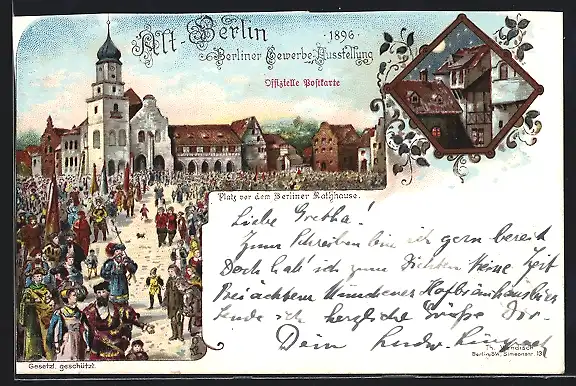 Alt-Berlin
· 1896 ·
Berliner Gewerbe-Ausstellung
Offizielle Postkarte
Platz vor dem Berliner Rathhause.
Liebe Gretha!
Zum Schreiben bin ich gern bereit
Doch hab' ich zum Dichten keine Zeit
Bei ächtem Münchener Hofbräuhausbier
Sende ich herzliche Grüße Dir.
Dein Ludw.
Gesetzl. geschützt.
Berlin SW. Simeonstr. 13